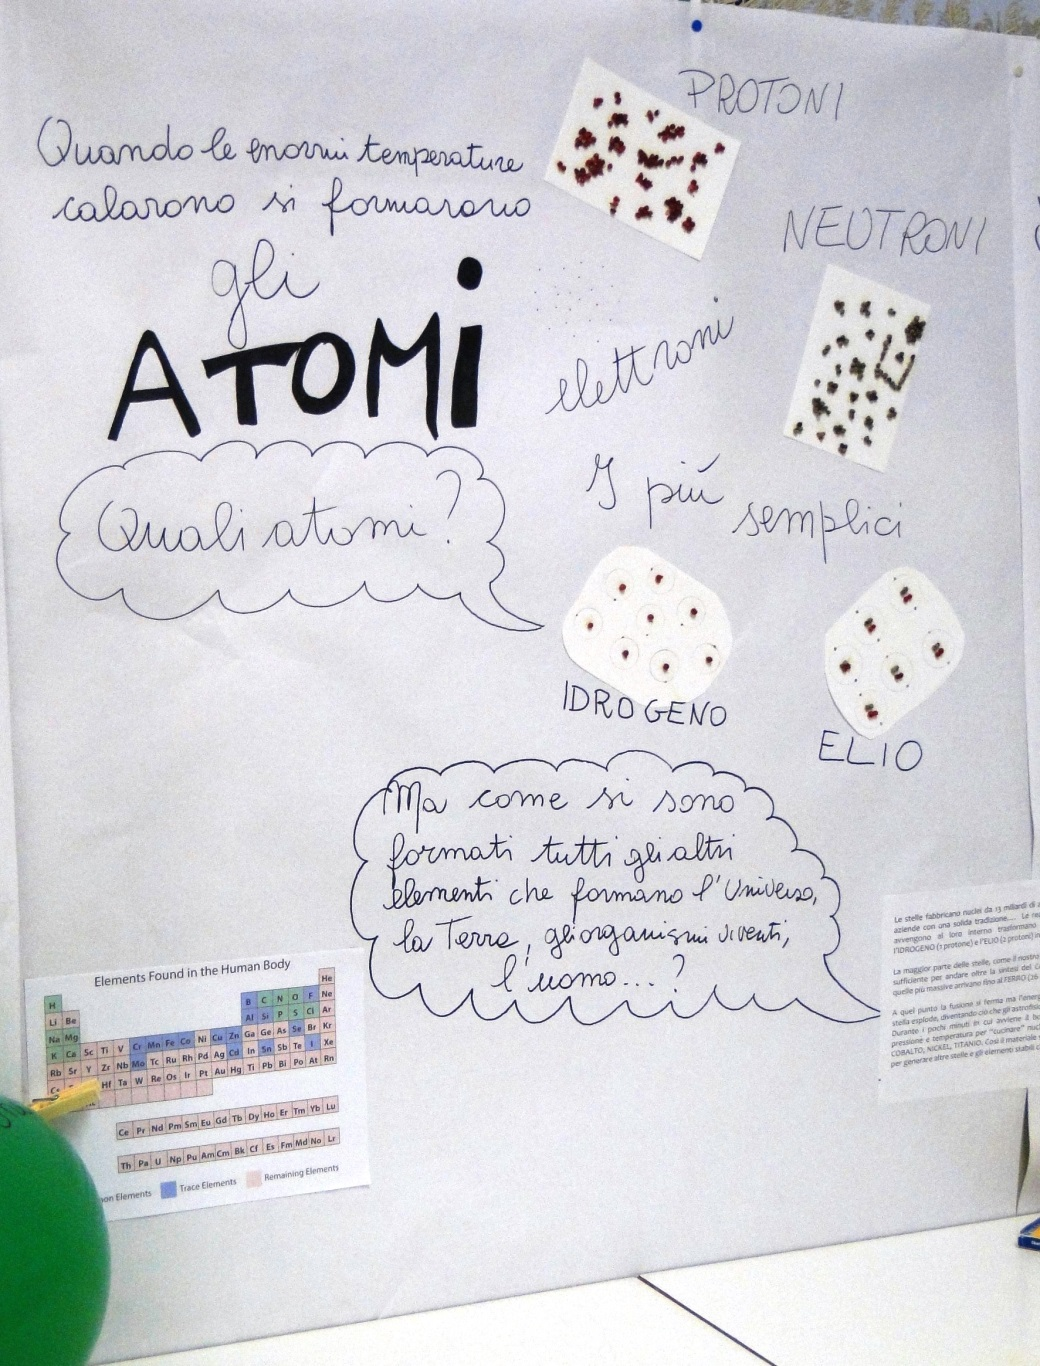 Quando le enormi temperature
calarono si formarono
gli
ATOMI
PROTONI
NEUTRONI
elettroni
Quali atomi?
I più
semplici
IDROGENO
ELIO
Ma come si sono
formati tutti gli altri
elementi che formano l'Universo,
la Terra, gli organismi viventi,
l'uomo...?
Elements Found in the Human Body
H He
Li Be B C N O F Ne
Na Mg Al Si P S Cl Ar
K Ca Sc Ti V Cr Mn Fe Co Ni Cu Zn Ga Ge As Se Br Kr
Rb Sr Y Zr Nb Mo Tc Ru Rh Pd Ag Cd In Sn Sb Te I Xe
Cs Hf Ta W Re Os Ir Pt Au Hg Tl Pb Bi Po At Rn
Ce Pr Nd Pm Sm Eu Gd Tb Dy Ho Er Tm Yb Lu
Th Pa U Np Pu Am Cm Bk Cf Es Fm Md No Lr
Elements Trace Elements Remaining Elements
Le stelle fabbricano nuclei da 13 miliardi di
aziende con una solida tradizione.... Le
avvengono al loro interno trasformano
l'IDROGENO (1 protone) e l'ELIO (2 protoni)
La maggior parte delle stelle, come il nostro
sufficiente per andare oltre la sintesi del
quelle più massive arrivano fino al FERRO (26
A quel punto la fusione si ferma ma l'energ
stella esplode, diventando ciò che gli astrofis
Durante i pochi minuti in cui avviene il
pressione e temperatura per "cucinare"
COBALTO, NICKEL, TITANIO. Così il materiale
per generare altre stelle e gli elementi stabili